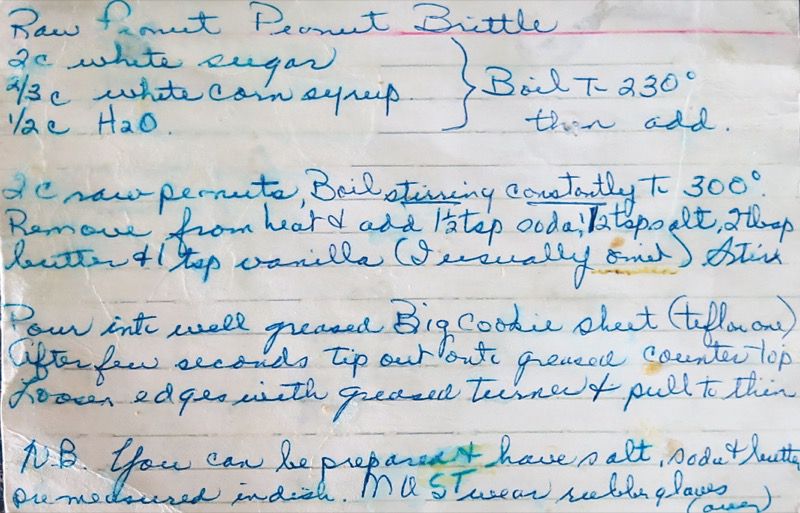 Raw Peanut Peanut Brittle
2c white sugar
2/3c white corn syrup. } Boil to 230°
1/2c H2O. then add.
2c raw peanuts, Boil stirring constantly to 300°.
Remove from heat & add 1 1/2 tsp soda, 1/2 tsp salt, 2 tbsp
butter & 1 tsp vanilla (I usually omit) Stir
Pour into well greased Big Cookie sheet (teflon one)
After few seconds tip out onto greased counter top
Loosen edges with greased turner & pull to thin
N.B. You can be prepared & have salt, soda & butter
premeasured in dish. MUST wear rubber gloves
(over)